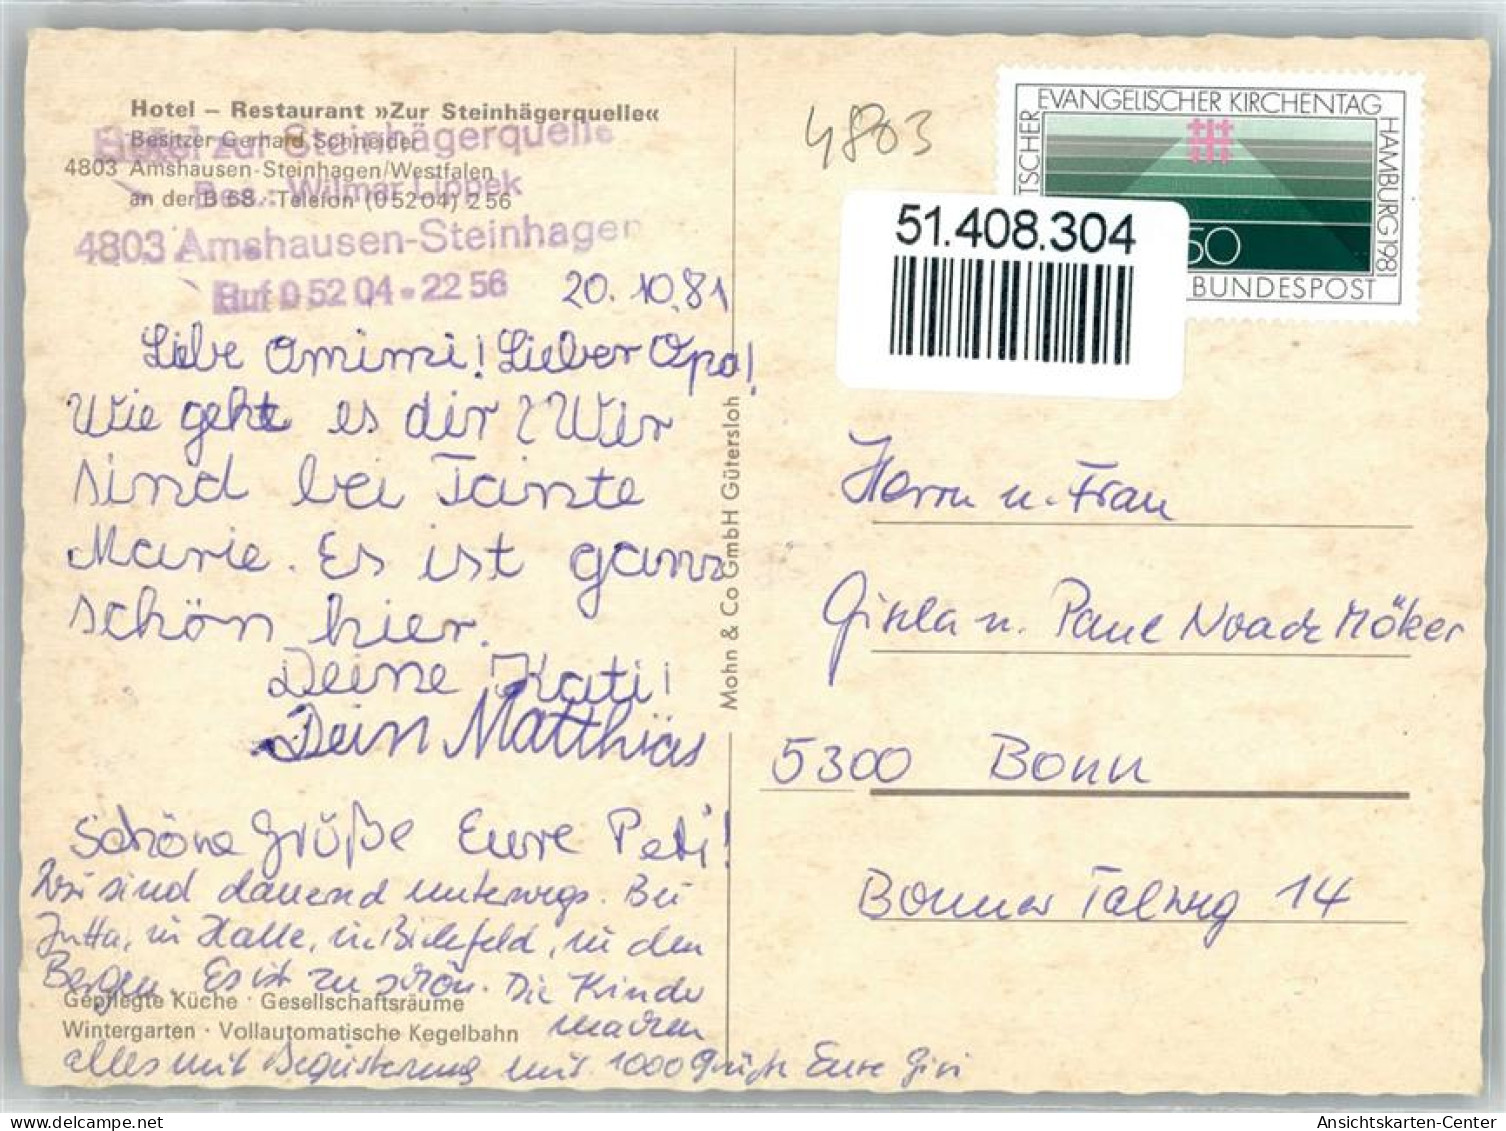 Hotel – Restaurant »Zur Steinhägerquelle«
Besitzer Gerhard Schneider
4803 Amshausen-Steinhagen/Westfalen
an der B 68 · Telefon (05204) 256
Hotel zur Steinhägerquelle
Bes.: Wilmar Lippek
4803 Amshausen-Steinhagen
Ruf 0 52 04 - 22 56
20.10.81
Liebe Omimi! Lieber Opa!
Wie geht es dir? Wir
sind bei Tante
Marie. Es ist ganz
schön hier.
Deine Kati!
Dein Matthias
Schöne Grüße Eure Peti!
Wir sind dauernd unterwegs. Bei
Jutta, in Halle, in Bielefeld, in den
Bergen. Es ist zu schön. Die Kinder
machen
alles mit Begeisterung mit. 1000 Grüße Eure Givi
Gepflegte Küche · Gesellschaftsräume
Wintergarten · Vollautomatische Kegelbahn
Mohn & Co GmbH Gütersloh
4803
TSCHER EVANGELISCHER KIRCHENTAG HAMBURG 1981
50
BUNDESPOST
51.408.304
Herrn u. Frau
Gisela u. Paul Noack Möker
5300 Bonn
Bonner Talweg 14
Ansichtskarten-Center